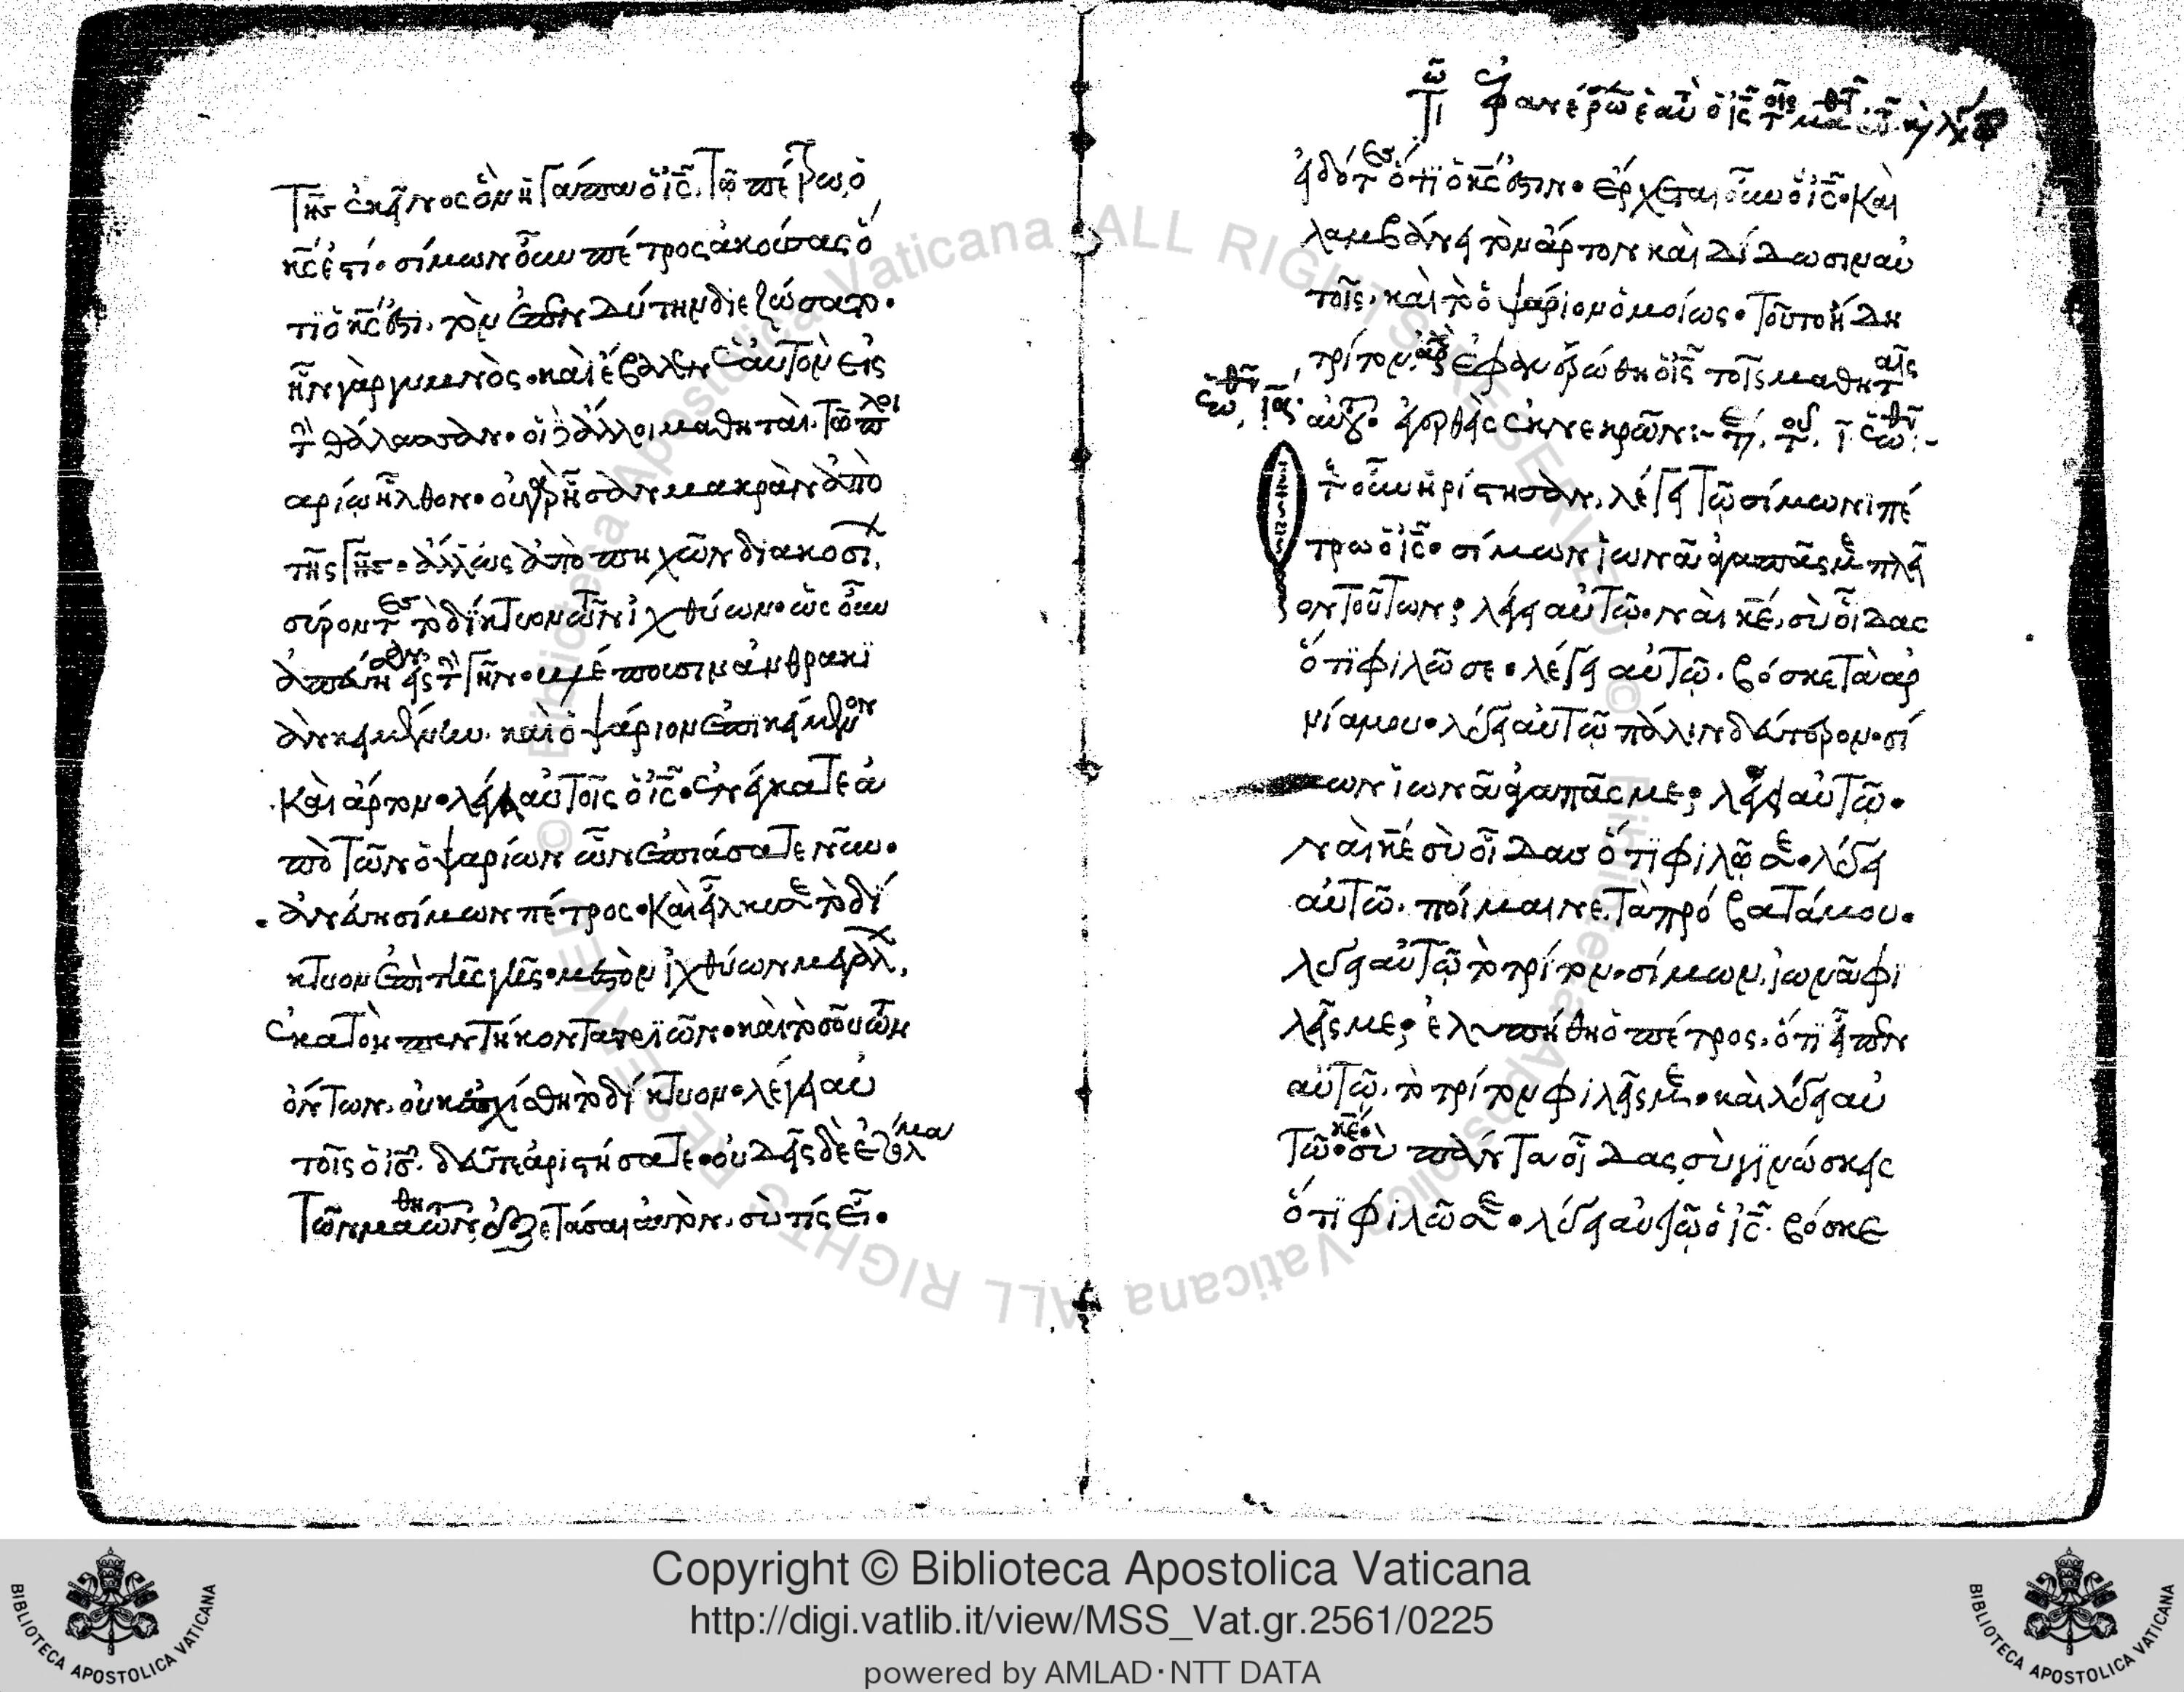 τῆς ἐκεῖνος ὃν ἠγάπα ὁ ις̅ τῶ πέτρω, ὁ
κς̅ ἐστί· σίμων οὖν πέτρος ἀκούσας ὅ
τι ὁ κς̅ ἐστι, τὸν ἐπενδύτην διεζώσατο·
ἦν γὰρ γυμνὸς· καὶ ἔβαλεν ἑαυτὸν εἰς
τὴν θάλασσαν· οἱ δὲ ἄλλοι μαθηταὶ, τῶ πλοι
αρίω ἦλθον· οὐ γὰρ ἦσαν μακρὰν ἀπὸ
τῆς γῆς· ἀλλ' ὡς ἀπὸ πηχῶν διακοσί,
σύροντες τὸ δίκτυον τῶν ἰχθύων· ὡς οὖν
ἀπέβησαν εἰς τὴν γῆν βλέπουσιν ἀνθρακι
ὰν κειμένην· καὶ ὀψάριον ἐπικείμενον
καὶ ἄρτον· λέγει αὐτοῖς ὁ ις̅· ἐνέγκατε ἀ
πὸ τῶν ὀψαρίων ὧν ἐπιάσατε νῦν·
ἀνέβη σίμων πέτρος· καὶ εἵλκυσε τὸ δί
κτυον ἐπὶ τῆς γῆς· μεστὸν ἰχθύων μεγάλ,
ἑκατὸν πεντήκοντα τριῶν· καὶ τοσούτων
ὄντων, οὐκ ἐσχίσθη τὸ δίκτυον· λέγει αὐ
τοῖς ὁ ις̅· δεῦτε ἀριστήσατε· οὐδεὶς δὲ ἐτόλμα
τῶν μαθητῶν, ἐξετάσαι αὐτὸν, σὺ τίς εἶ·
τῶ ἐφανέρω ἑαυ ὁ ις̅ τοῖς μα
εἰδότες ὅτι ὁ κς̅ ἐστιν· ἔρχεται οὖν ὁ ις̅· καὶ
λαμβάνει τὸν ἄρτον καὶ δίδωσιν αὐ
τοῖς, καὶ τὸ ὀψάριον ὁμοίως· τοῦτο ἤδη
τρίτον, ἐφανερώθη ὁ ις̅ τοῖς μαθηταῖς
αὐτοῦ· ἐγερθεὶς ἐκ νεκρῶν:~
ὅτε οὖν ἠρίστησαν, λέγει τῶ σίμωνι πέ
τρω ὁ ις̅· σίμων ἰωνᾶ ἀγαπᾶς με πλεῖ
ον τούτων; λέγει αὐτῶ· ναὶ κε̅, σὺ οἶδας
ὅτι φιλῶ σε· λέγει αὐτῶ· βόσκε τὰ ἀρ
νία μου· λέγει αὐτῶ πάλιν δεύτερον· σί
μων ἰωνᾶ ἀγαπᾶς με; λέγει αὐτῶ·
ναὶ κε̅ σὺ οἶδας ὅτι φιλῶ σε· λέγει
αὐτῶ· ποίμαινε τὰ πρόβατά μου·
λέγει αὐτῶ τὸ τρίτον· σίμων, ἰωνᾶ φι
λεῖς με; ἐλυπήθη ὁ πέτρος, ὅτι εἶπεν
αὐτῶ, τὸ τρίτον φιλεῖς με· καὶ λέγει αὐ
τῶ· κε̅ σὺ πάντα οἶδας, σὺ γινώσκεις
ὅτι φιλῶ σε· λέγει αὐτῶ ὁ ις̅· βόσκε
Copyright © Biblioteca Apostolica Vaticana
http://digi.vatlib.it/view/MSS_Vat.gr.2561/0225
powered by AMLAD·NTT DATA